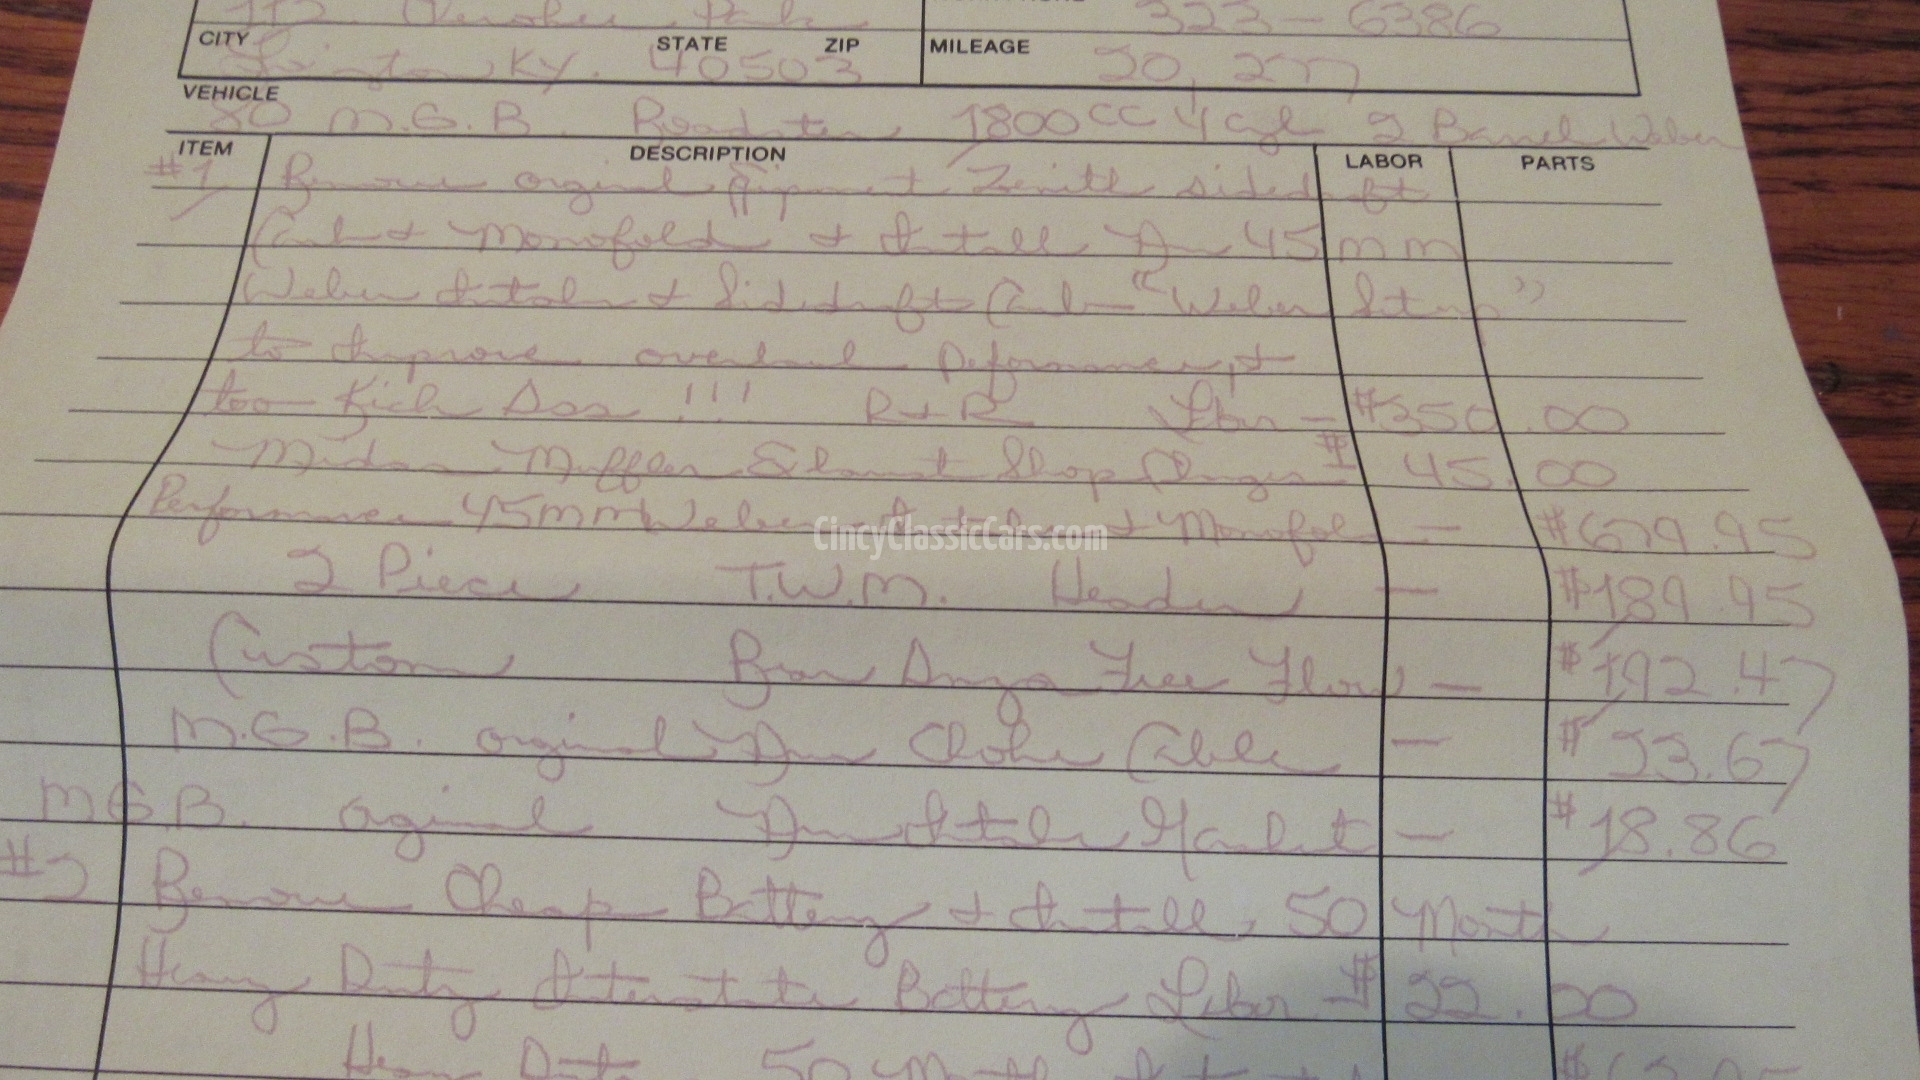 323-6386
CITY STATE ZIP MILEAGE
KY. 40503 20,277
VEHICLE
80 M.G.B. Roadster 1800cc 4 Cyl 2 Barrel Weber
ITEM DESCRIPTION LABOR PARTS
#1 Remove orginal Zenith sidedraft
Carb & Monofold & Install New 45 mm
Weber Intake & Sidedraft Carb - "Weber Setup"
to Improve overhaul
too Kick Ass !!! R & R Lbor - $350.00
Midas Muffler Exhaust Shop $ 45.00
Performance 45mm Weber Intake & Monofold - $679.95
2 Piece T.W.M. Header - $189.95
Custom Free Flow - $192.47
M.G.B. orginal New Choke Cable - $ 23.67
M.G.B. orginal New Intake - $18.86
#2 Remove Cheap Battery & Install 50 Month
Heavy Duty Interstate Battery Labor - $ 22.00
Heavy Duty 50 Month
CincyClassicCars.com